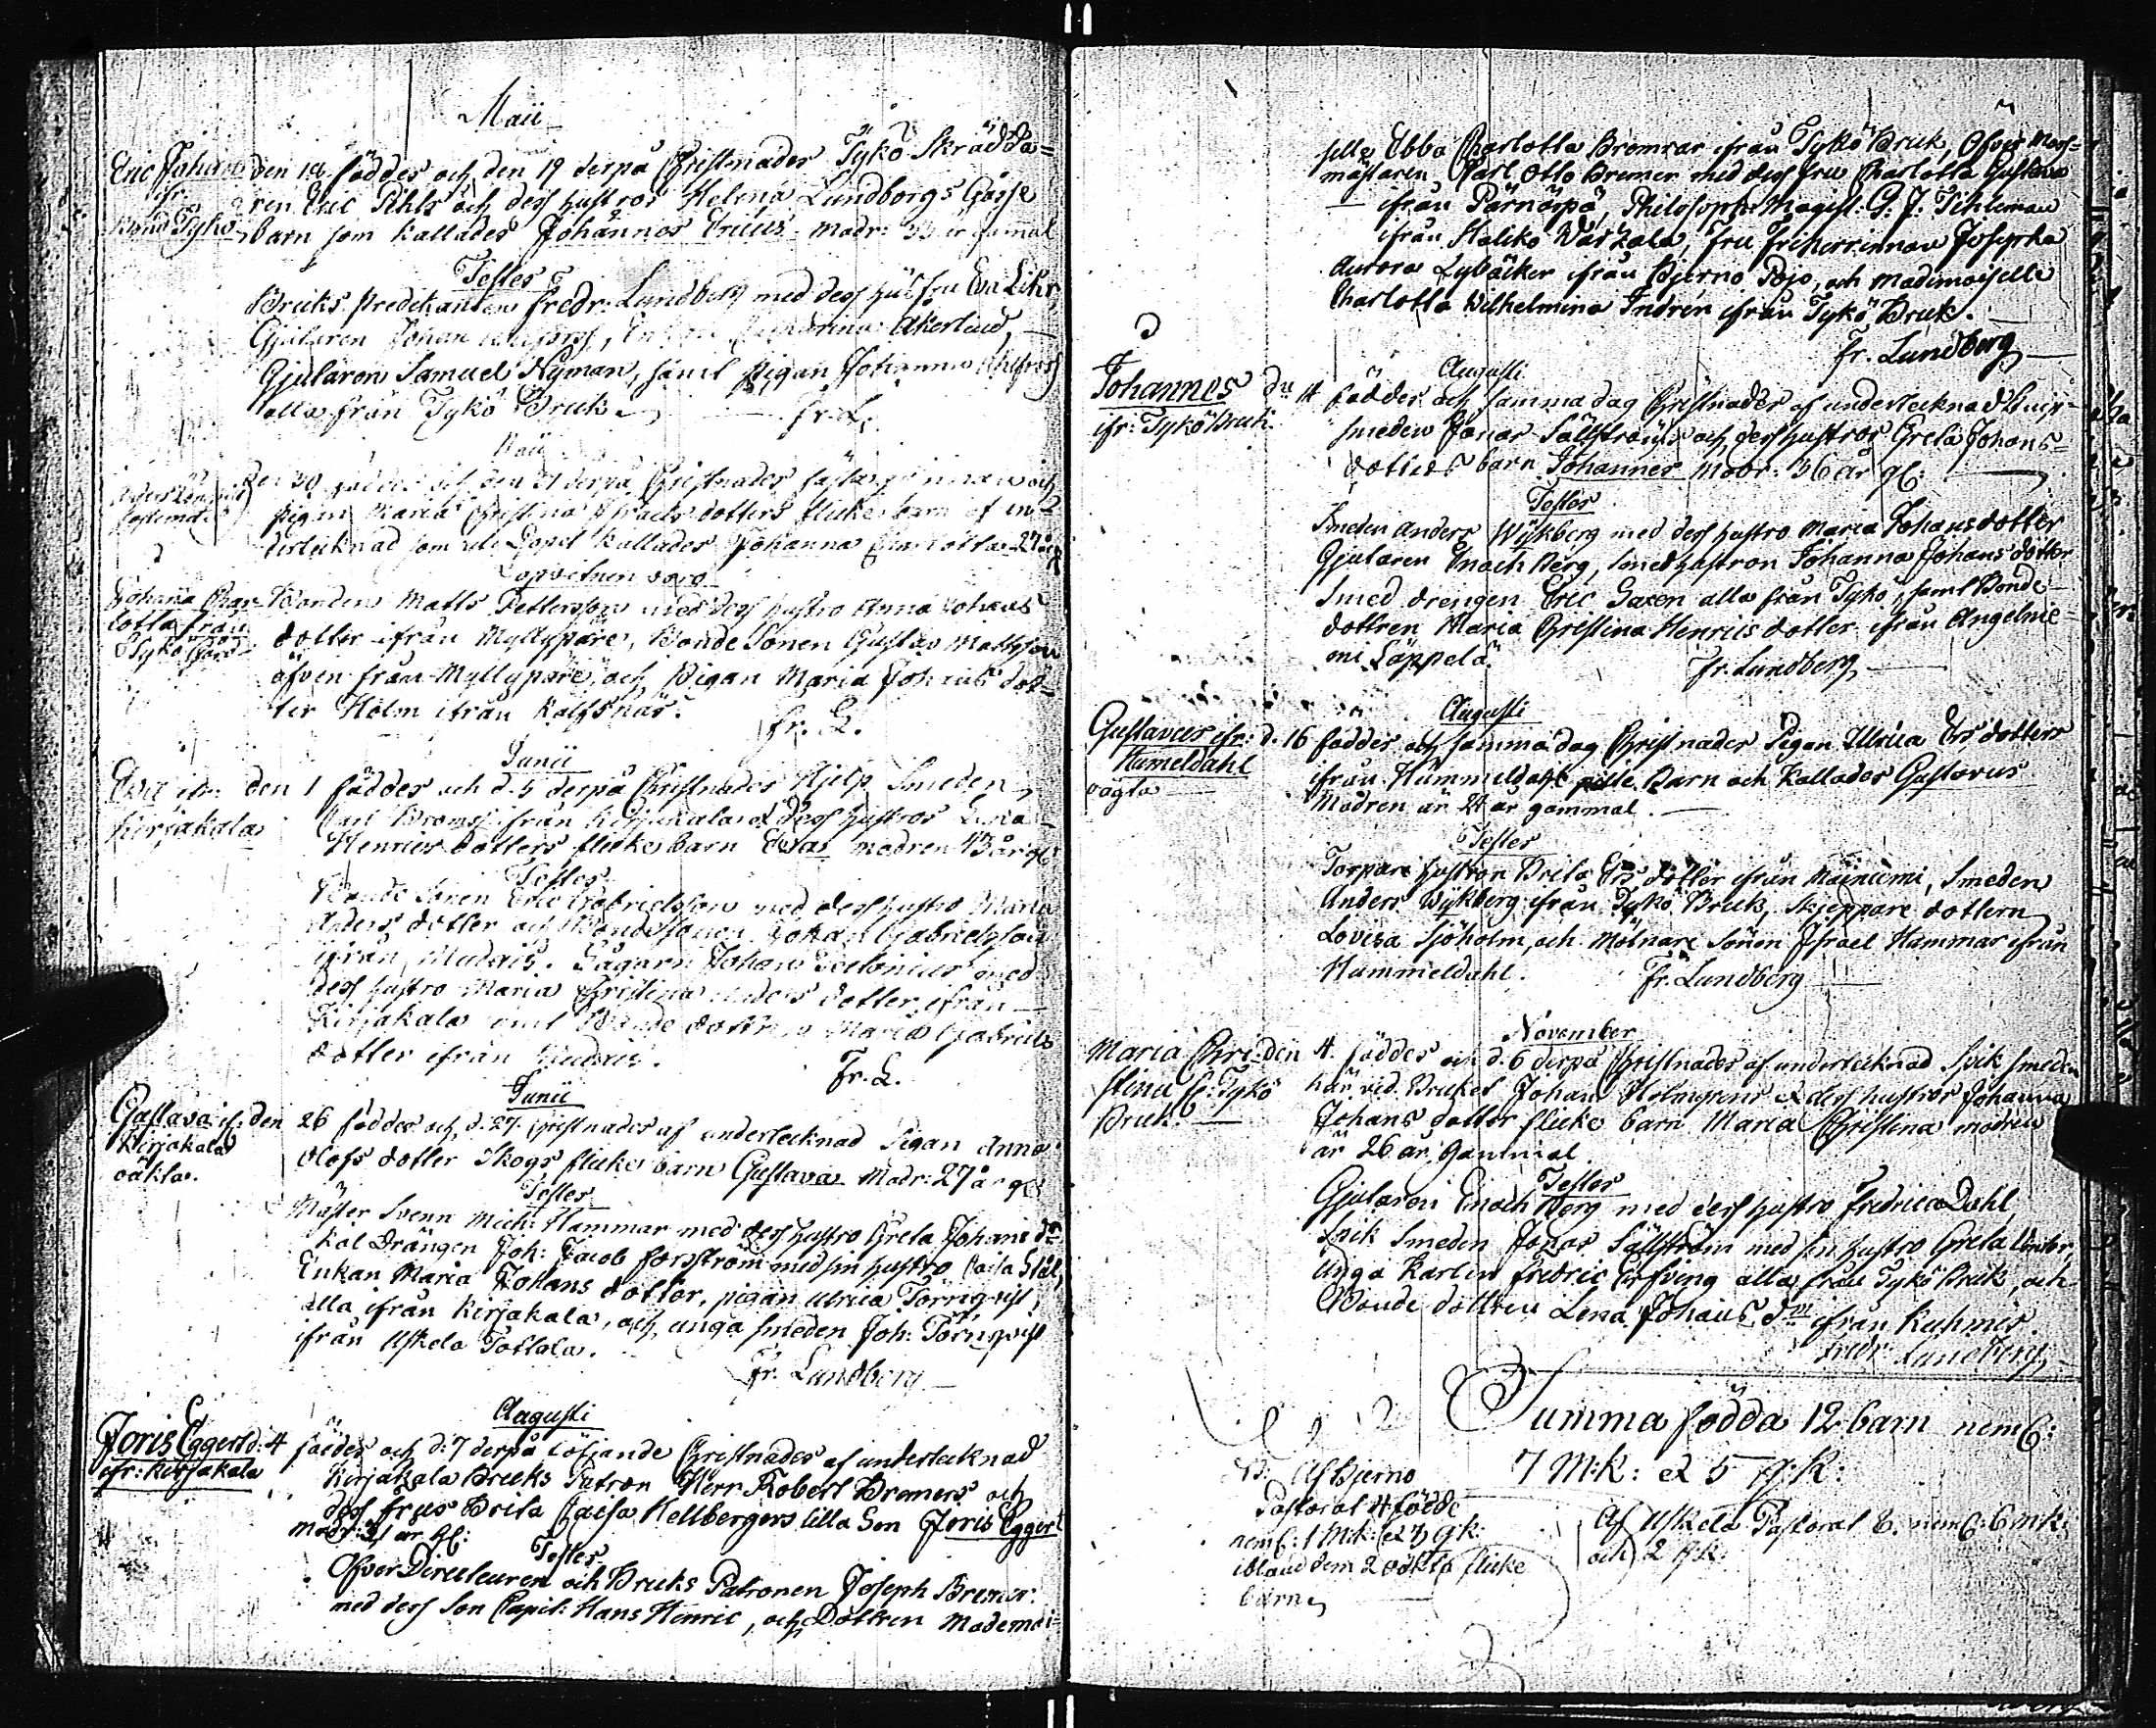 Maii
Eric Johan den 18 föddes och den 19 derpå Christnades Tykö Skrädda=
ifr. ren Eric Pihls och dess hustros Helena Lundborgs Gosse
Tykö barn som kallades Johannes Ericus. Modr: 33 år gamal
Testes
Bruks predikanten Fredr: Lundberg med dess hustru Eva Lihr,
Gjutaren Johan Åkerlund,
Gjutaren Samuel Nyman, samt pigan Johanna Ahlfors
alla från Tykö Bruk. Fr. L.
Maii
den 30 föddes och den 31 derpå Christnades
pigan Maria Christina Israels dotters flicke barn af un=
dertecknad som i Dopet kallades Johanna Charlotta 27 år
Dopvitnen voro
Johana Char- Bonden Matts Pettersson med dess hustro Anna Johans
lotta från dotter ifrån Myllypäre, Bonde Sonen Gustav Mattsson
Tykö Gård äfven från Myllypäre, och Pigan Maria Johans dot=
ter Holm ifrån Kalfsnäs. Fr. L.
Junii
Eva ifr: den 1 föddes och d. 5 derpå Christnades Hjelp Smeden
Kirjakala Carl Broms ifrån Kirjakala et dess hustros Lena
Henrics dotters flicke barn Eva modren 43 år gl:
Testes
Bonde Sonen Eric Gabrielsson med dess hustro Maria
Anders dotter och Bondesonen Johan Gabrielsson
ifrån Mudais. Sågarn Johan med
dess hustro Maria Christina Anders dotter ifrån
Kirjakala samt Bonde dottren Maria Gabriels
dotter ifrån Mudais. Fr. L.
Junii
Gustava if. den 26 föddes och d. 27 Christnades af undertecknad Pigan Anna
Kirjakala Olofs dotter Skogs flicke barn Gustava Modr: 27 år gl:
oäkta. Testes
Mäster Svenn Mich: Hammar med dess hustro Greta Johans dr
Kol Drängen Joh: Jacob Forsström med sin hustro Caisa Stål,
Enkan Maria Johans dotter, pigan Ulrica Törnqvist,
alla ifrån Kirjakala, och unga smeden Joh: Törnqvist
ifrån Uskela Tottala.
Fr. Lundberg
Augusti
Joris Eggert d: 4 föddes och d: 7 derpå följande Christnades af undertecknad
ifr: Kirjakala Kirjakala Bruks Patron Herr Robert Bremers och
dess frus Brita Caisa Hellbergers lilla Son Joris Eggert
modr: 31 år gl:
Testes
Öfver Directeuren och Bruks Patronen Joseph Bremer
med dess Son Capit: Hans Henric, och Dottren Mademoi=
selle Ebba Charlotta Bremer ifrån Tykö Bruk, Öfver Mas=
mästaren Carl Otto Bremer med dess fru Charlotta Gustava
ifrån Pärnärpä, Philosoph: Magist: G: J: Tihleman
ifrån Haliko Waskala, fru friherrinnan Josepha
Aurora Lybäcker ifrån Bjerno Pojo, och Mademoiselle
Charlotta Wilhelmina Indrén ifrån Tykö Bruk.
Fr. Lundberg
Augusti
Johannes dn 14 föddes och samma dag Christnades af undertecknad Knip-
ifr: Tykö Bruk smeden Jonas Sällströms och dess hustros Greta Johans=
dotters barn Johannes Modr: 36 år gl:
Testes
Smeden Anders Wykberg med dess hustro Maria Johansdotter
Gjutaren Enoch Berg, smedhustron Johanna Johans dotter
Smed drengen Eric Saxen alla från Tykö, samt Bonde
dottren Maria Christina Henrics dotter ifrån Angelnie
mi Läppelä. Fr. Lundberg
Augusti
Gustavus ifr: d. 16 föddes och samma dag Christnades Pigan Ulrica Ers dotters
Hummeldahl ifrån Hummeldahl Barn och kallades Gustavus
oägta Modren är 24 år gammal.
Testes
Torpare hustron Brita Ers dotter ifrån Mainiemi, Smeden
Anders Wykberg ifrån Tykö Bruk, Skjeppare dottern
Lovisa Sjöholm, och Mölnare Sonen Israel Hammar ifrån
Hummeldahl. Fr. Lundberg
November
Maria Chri- den 4. föddes och d. 6 derpå Christnades af undertecknad Spik smeden
stina ifr: Tykö här vid Bruket Johan Holmgrens et dess hustros Johanna
Bruk. Johans dotter flicke barn Maria Christina modren
är 26 år gammal.
Testes
Gjutaren Enoch Berg med dess hustro Fredrica Dahl,
Spik Smeden Jonas Sällström med sin hustro Greta
Unga Karlen Fredric Arfving alla från Tykö Bruk, och
Bonde dottren Lena Johans dr ifrån Kuhmis.
Fredr: Lundberg
Summa födda 12 barn neml:
7 M:K: et 5 q:K:
Af Bjerno
Pastorat 4 födde
neml: 1 M:k: et 3 q.k:
ibland dem 2 oäkta flicke
barn
Af Uskela Pastorat 8. neml: 6 m:k:
och 2 q:k: